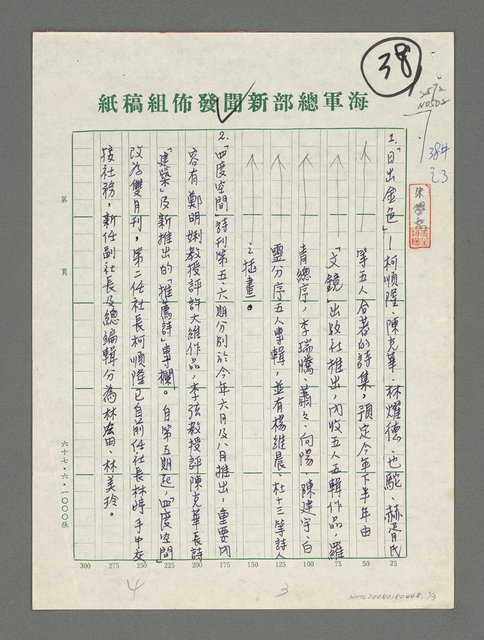 38
2572
N0502
38#
23
海軍總部新聞發佈組稿紙
1.「日出金色」—柯順隆、陳克華、林燿德、也駝、赫胥氏
等五人合著的詩集，預定今年下半年由
「文鏡」出版社推出，內收五人五輯作品，羅
青總序，李瑞騰、蕭蕭、向陽、陳建宇、白
靈分序五人專輯，並有楊維晨、杜十三等詩人
之插畫。
2.「四度空間」詩刊第五、六期分別於今年六月及八月推出，重要內
容有鄭明娳教授評許大維作品，李弦教授評陳克華長詩
「建築」及新推出的「推薦詩」專欄。自第五期起，「四度空間」
改為雙月刊，第二任社長柯順隆已自前任社長林婷手中交
接社務，新任副社長及總編輯分為林宏田、林美玲。
第　頁
六十七・6・1000張
300 275 250 225 200 175 150 125 100 75 50 25
4 3
NMTL20080180448, 1/3